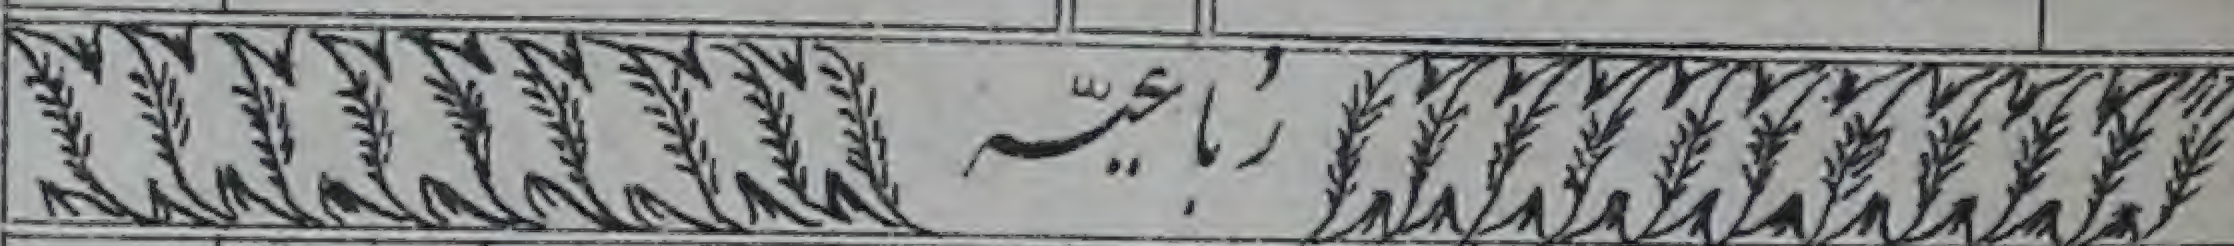 رُباعيّہ